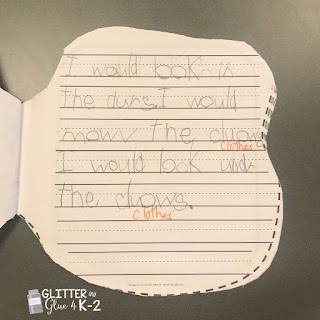 I would look in
the durs. I would
mowv the cluows
clothes
I would look undr
the cluows.
clothes
GLITTER and
Glue 4 K-2